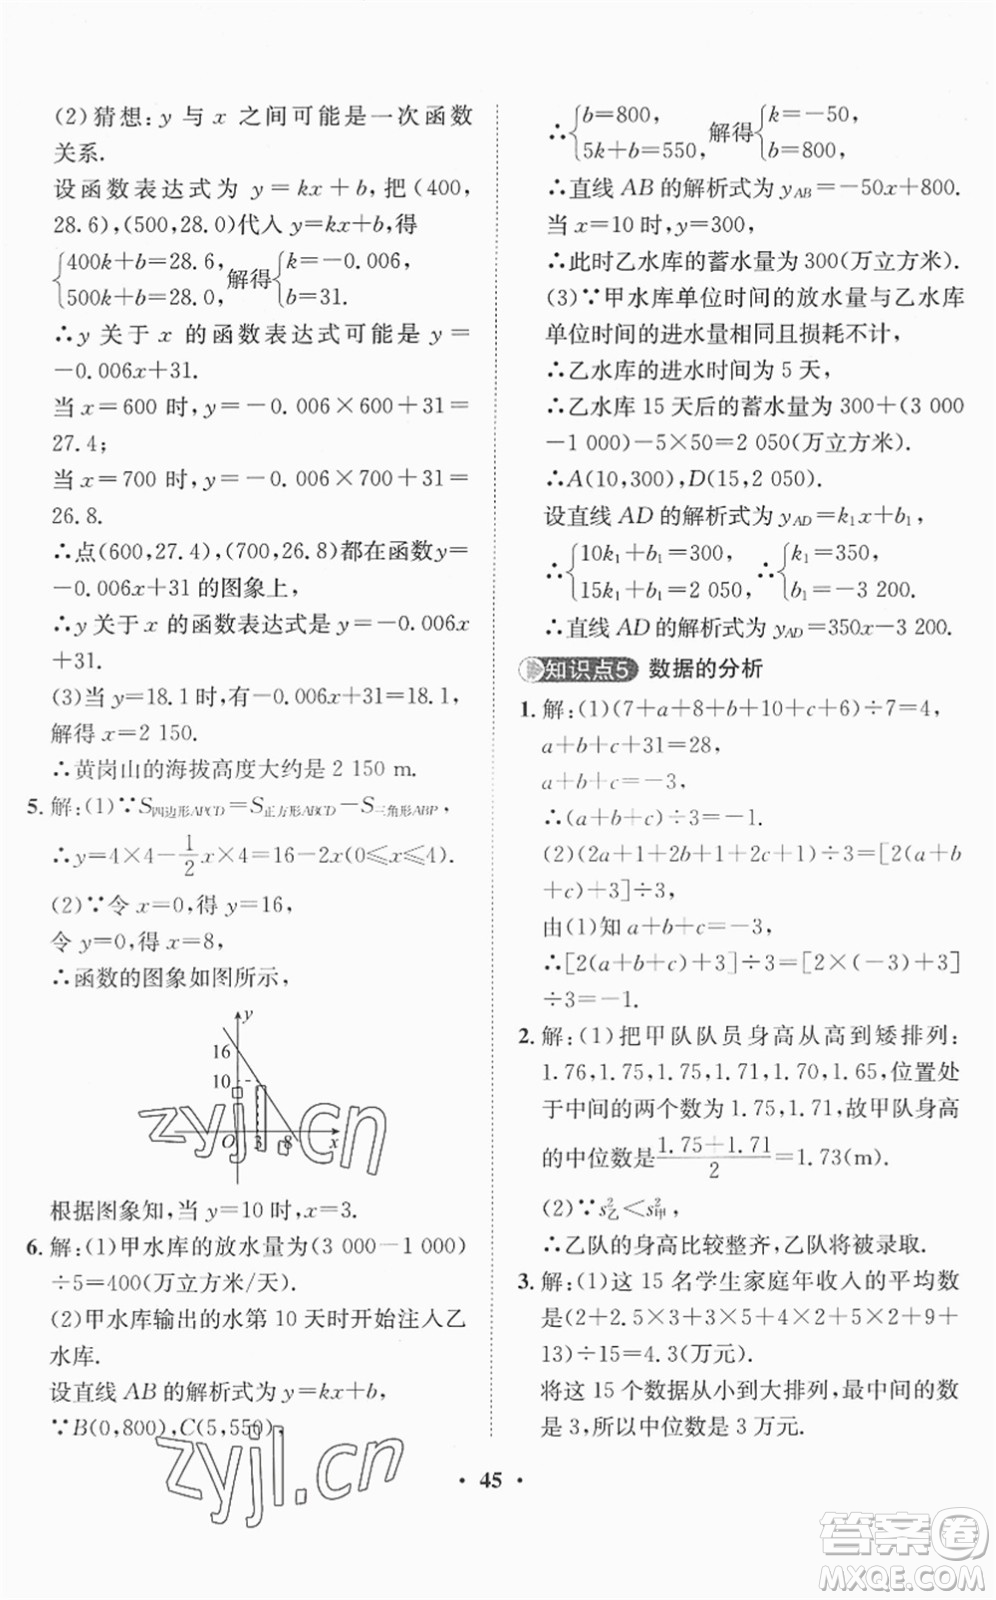 (2)猜想:y 与 x 之间可能是一次函数
关系.
设函数表达式为 y=kx+b,把(400,
28.6),(500,28.0)代入 y=kx+b,得
{400k+b=28.6, 500k+b=28.0, 解得{k=-0.006, b=31.
∴y 关于 x 的函数表达式可能是 y=
-0.006x+31.
当 x=600 时,y=-0.006×600+31=
27.4;
当 x=700 时,y=-0.006×700+31=
26.8.
∴点(600,27.4),(700,26.8)都在函数y=
-0.006x+31 的图象上,
∴y 关于 x 的函数表达式是 y=-0.006x
+31.
(3)当 y=18.1 时,有-0.006x+31=18.1,
解得 x=2 150.
∴黄岗山的海拔高度大约是 2 150 m.
5. 解:(1)∵S四边形APCD=S正方形ABCD-S三角形ABP,
∴y=4×4-1/2 x×4=16-2x(0≤x≤4).
(2)∵令 x=0,得 y=16,
令 y=0,得 x=8,
∴函数的图象如图所示,
y
16
10
O 3 8 x
根据图象知,当 y=10 时,x=3.
6. 解:(1)甲水库的放水量为(3 000-1 000)
÷5=400(万立方米/天).
(2)甲水库输出的水第 10 天时开始注入乙
水库.
设直线 AB 的解析式为 y=kx+b,
∵B(0,800),C(5,550),
∴{b=800, 5k+b=550, 解得{k=-50, b=800,
∴直线 AB 的解析式为 yAB=-50x+800.
当 x=10 时,y=300,
∴此时乙水库的蓄水量为 300(万立方米).
(3)∵甲水库单位时间的放水量与乙水库
单位时间的进水量相同且损耗不计,
∴乙水库的进水时间为 5 天,
∴乙水库 15 天后的蓄水量为 300+(3 000
-1 000)-5×50=2 050(万立方米).
∴A(10,300),D(15,2 050).
设直线 AD 的解析式为 yAD=k₁x+b₁,
∴{10k₁+b₁=300, 15k₁+b₁=2 050, ∴{k₁=350, b₁=-3 200.
∴直线 AD 的解析式为 yAD=350x-3 200.
知识点5 数据的分析
1. 解:(1)(7+a+8+b+10+c+6)÷7=4,
a+b+c+31=28,
a+b+c=-3,
∴(a+b+c)÷3=-1.
(2)(2a+1+2b+1+2c+1)÷3=[2(a+b
+c)+3]÷3,
由(1)知 a+b+c=-3,
∴[2(a+b+c)+3]÷3=[2×(-3)+3]
÷3=-1.
2. 解:(1)把甲队队员身高从高到矮排列:
1.76,1.75,1.75,1.71,1.70,1.65,位置处
于中间的两个数为 1.75,1.71,故甲队身高
的中位数是(1.75+1.71)/2=1.73(m).
(2)∵s²乙<s²甲,
∴乙队的身高比较整齐,乙队将被录取.
3. 解:(1)这 15 名学生家庭年收入的平均数
是(2+2.5×3+3×5+4×2+5×2+9+
13)÷15=4.3(万元).
将这 15 个数据从小到大排列,最中间的数
是 3,所以中位数是 3 万元.
• 45 •
zyjl.cn
zyjl.cn
答案卷
MXQE.COM